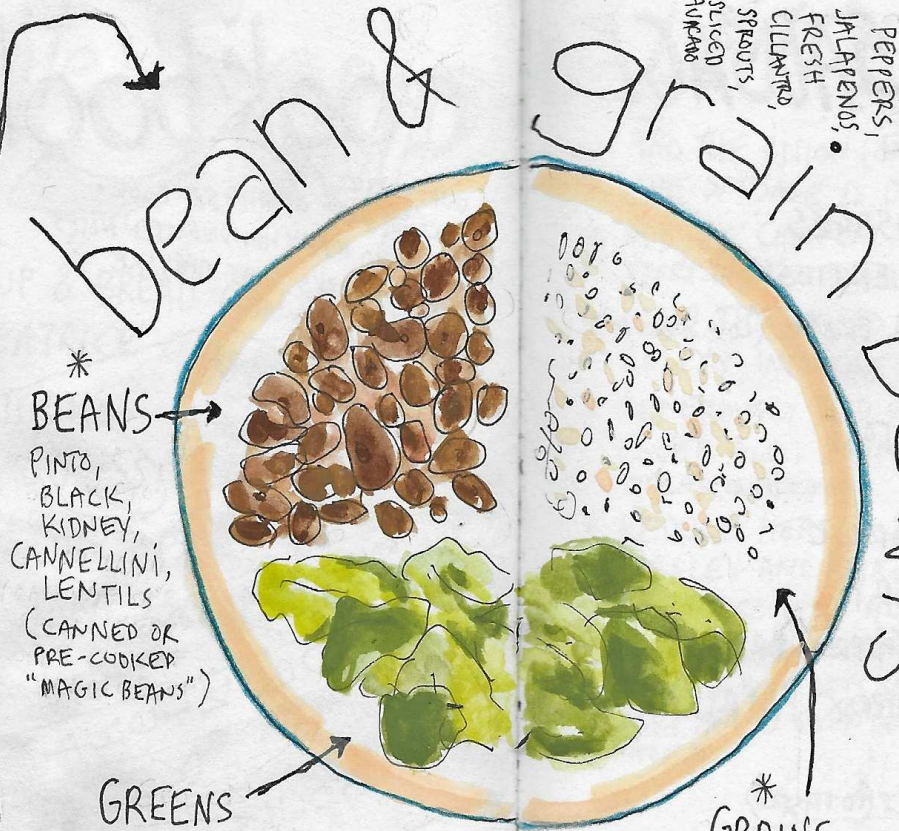 bean & grain
PEPPERS,
JALAPENOS,
FRESH
CILLANTRO,
SPROUTS,
SLICED
AVACADO
* BEANS
PINTO,
BLACK,
KIDNEY,
CANNELLINI,
LENTILS
(CANNED OR
PRE-COOKED
"MAGIC BEANS")
GREENS
* GRAINS